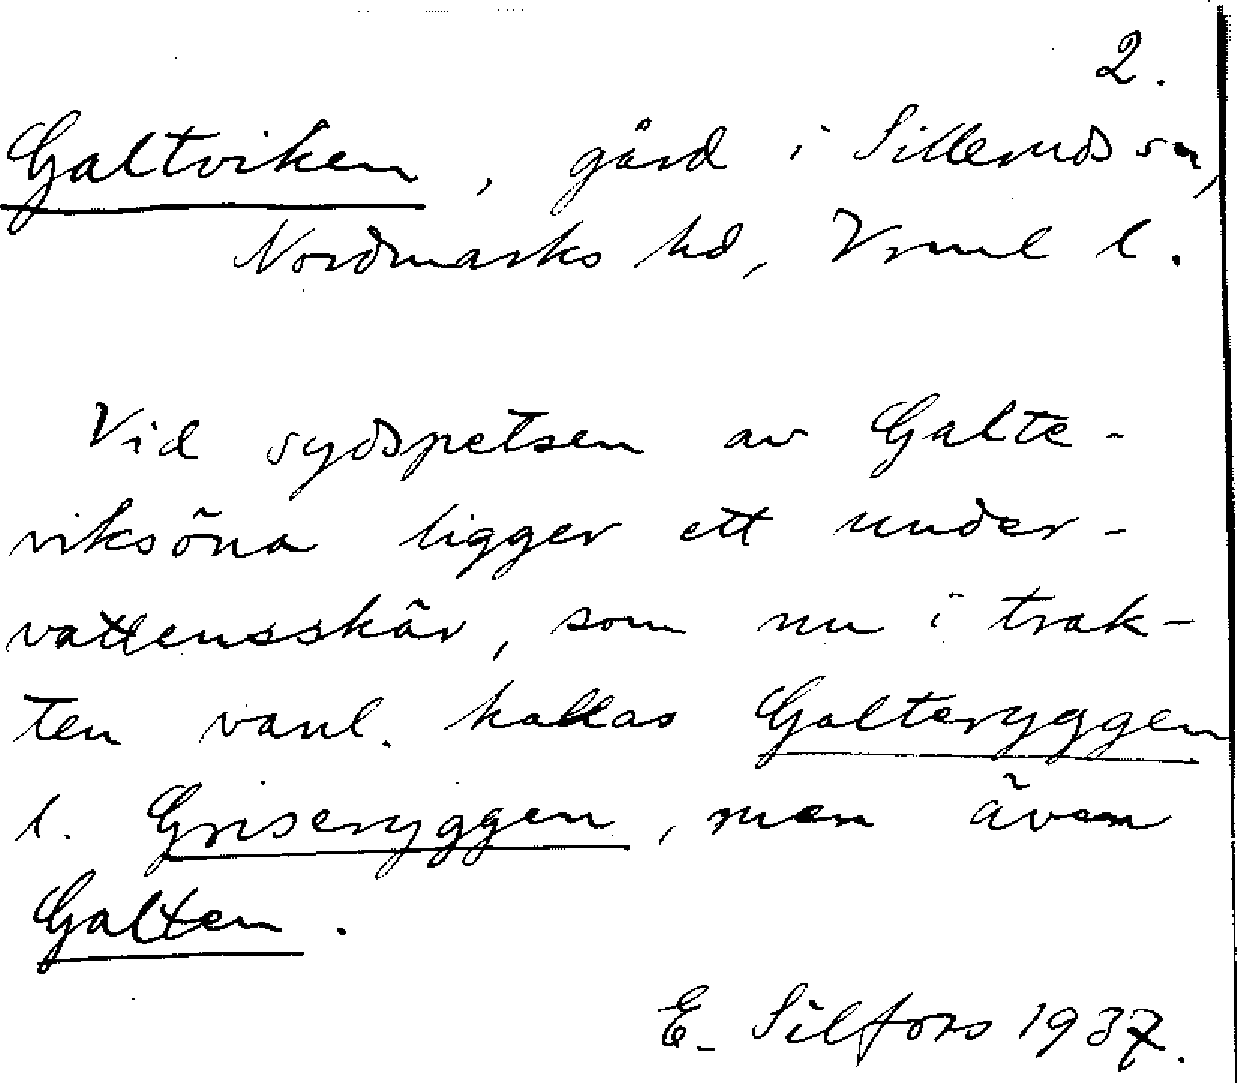 2.
Galtviken, gård i Silleruds sn,
Nordmarks hd, Vrml l.
Vid sydspetsen av Galte-
viksöna ligger ett under-
vattensskär, som nu i trak-
ten vanl. kallas Galteryggen
l. Griseryggen, men även
Galten.
E. Silfors 1937.